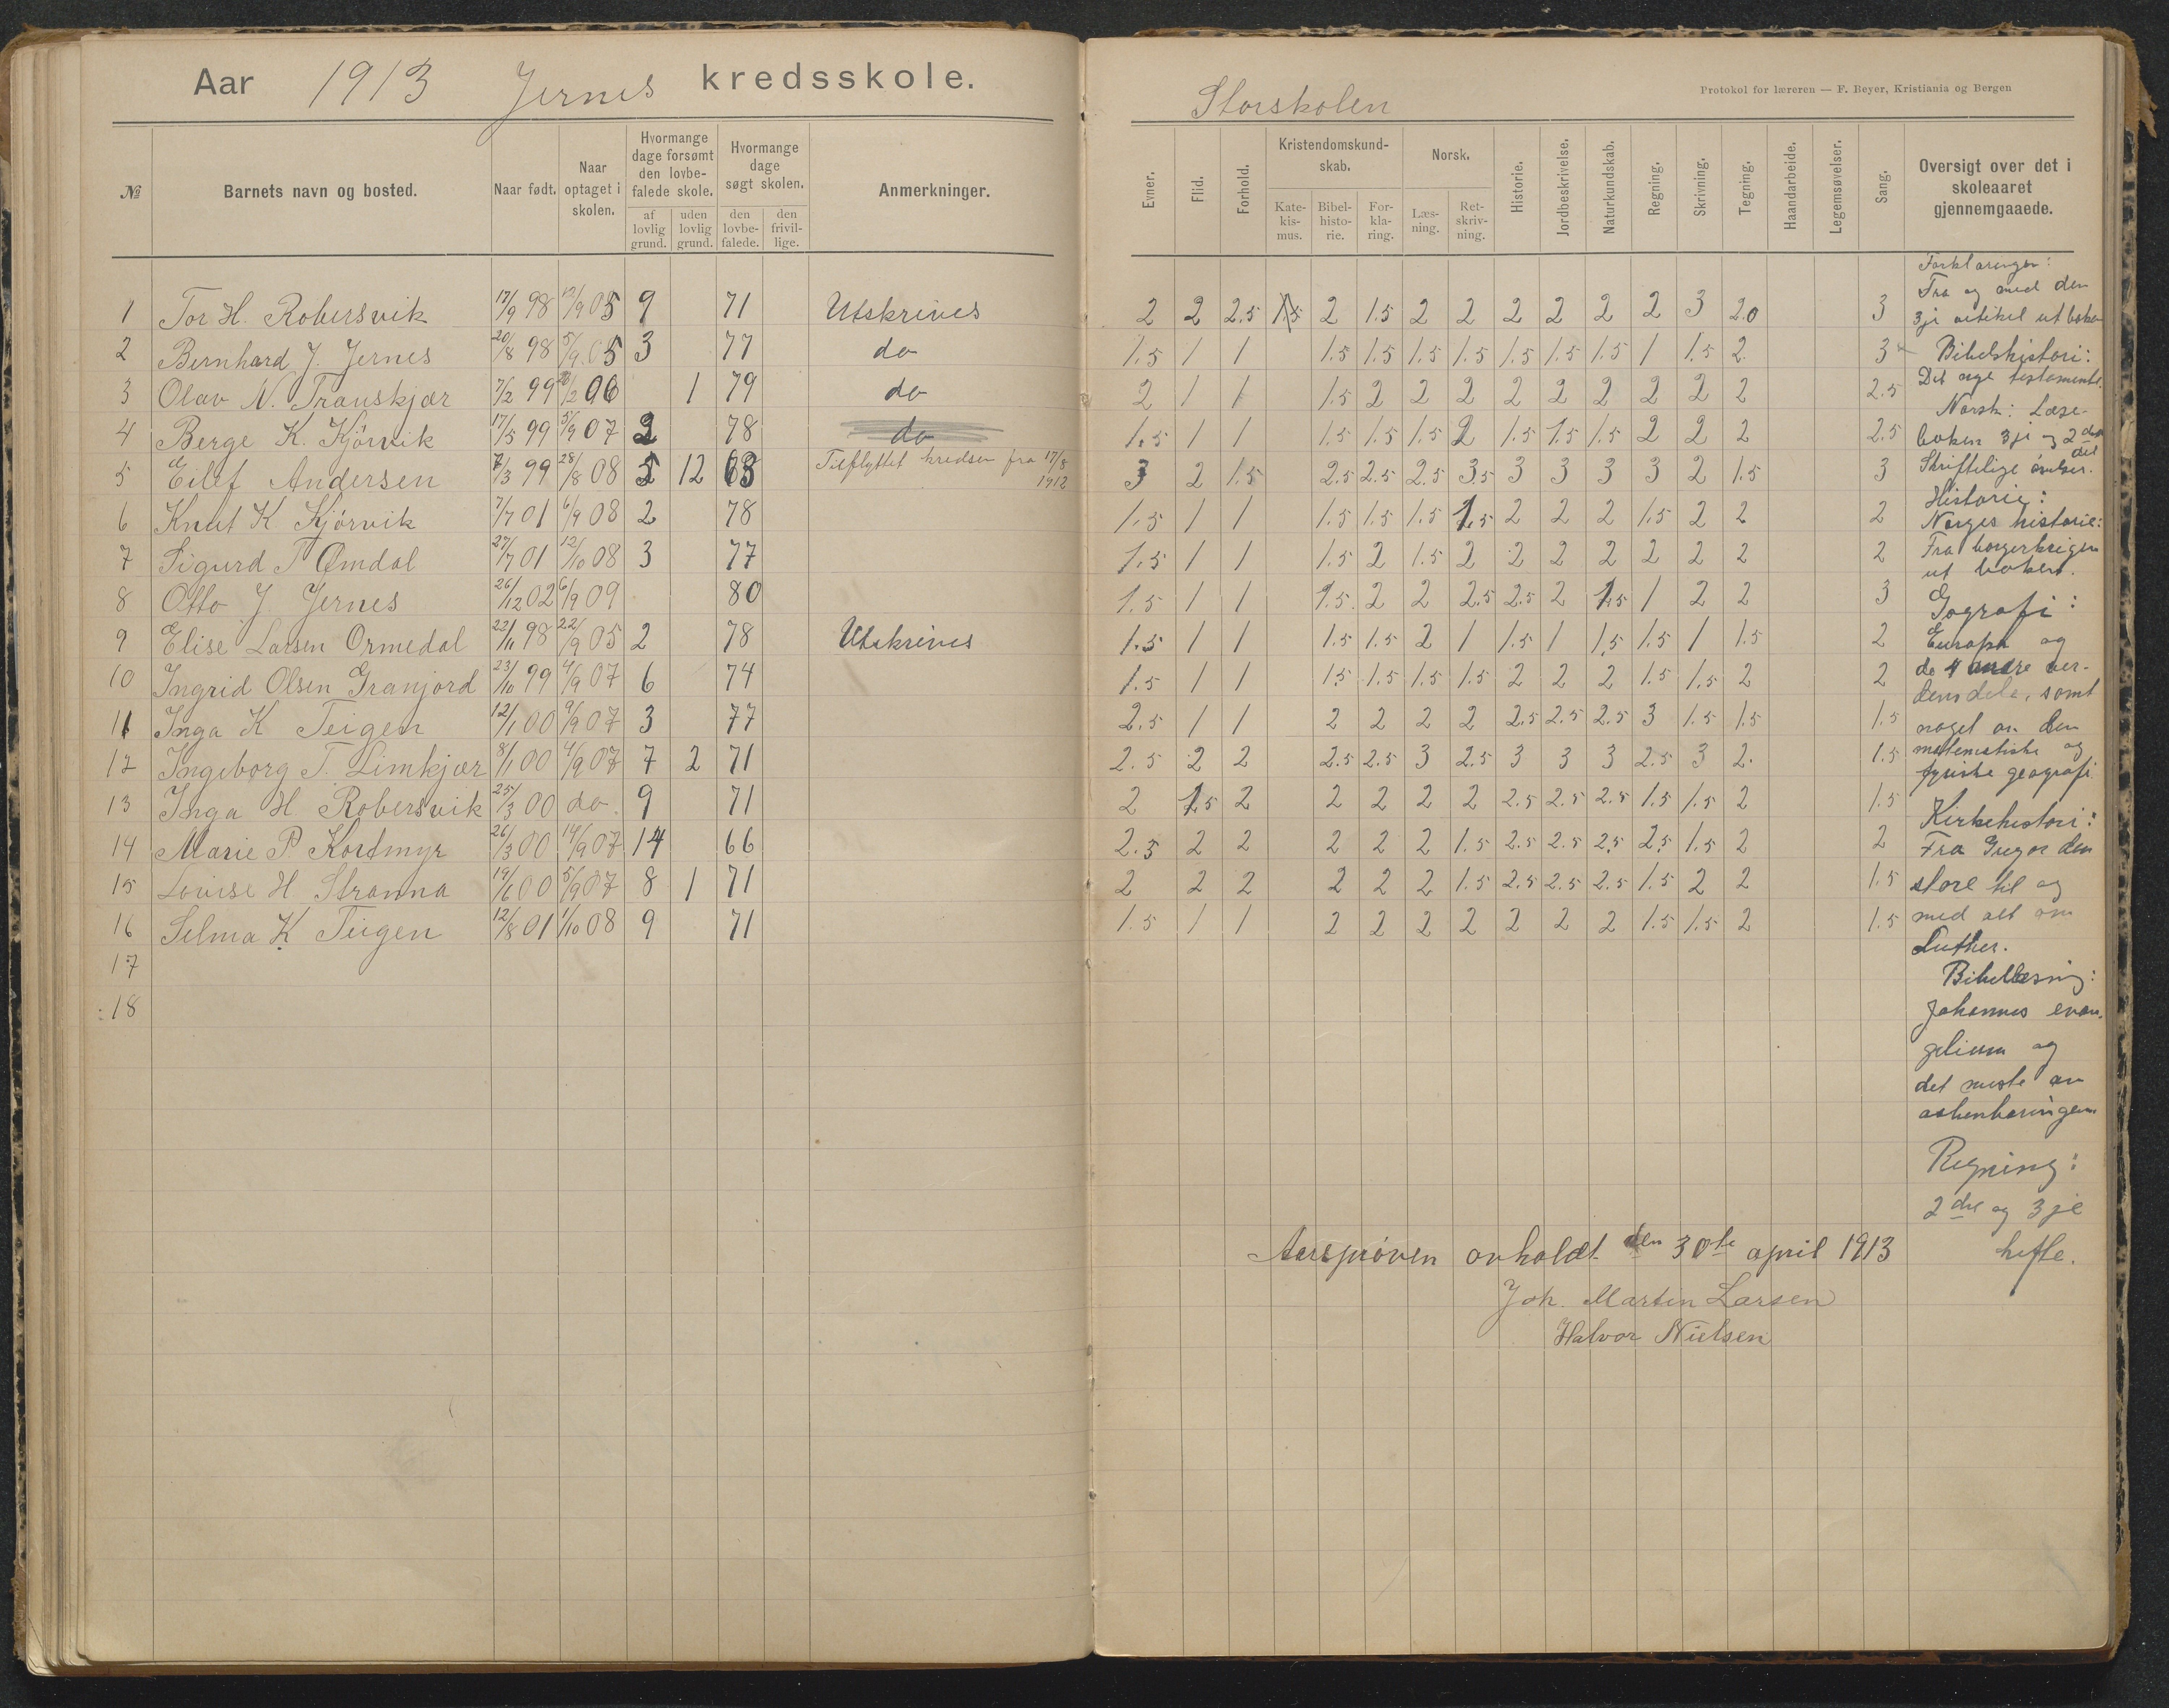 Aar 1913 Jernes kredsskole.
№ Barnets navn og bosted. Naar født. Naar optaget i skolen. Hvormange dage forsømt den lovbefalede skole. af lovlig grund. uden lovlig grund. Hvormange dage søgt skolen. den lovbefalede. den frivillige. Anmerkninger.
1 Tor H. Robersvik 17/9 98 12/9 05 9 71 Utskrives
2 Bernhard J. Jernes 20/8 98 5/9 05 3 77 do
3 Olav N. Transkjær 7/2 99 06 1 79 do
4 Berge K. Kjörvik 17/5 99 5/9 07 2 78 do
5 Eilef Andersen 7/3 99 28/8 08 5 12 63 Tilflyttet kredsen fra 17/8 1912
6 Knut K Kjörvik 7/7 01 6/9 08 2 78
7 Sigurd T Ømdal 27/7 01 12/10 08 3 77
8 Otto J. Jernes 26/12 02 6/9 09 80
9 Elise Larsen Ormedal 22/11 98 22/9 05 2 78 Utskrives
10 Ingrid Olsen Granjord 23/10 99 4/9 07 6 74
11 Inga K Teigen 12/1 00 9/9 07 3 77
12 Ingeborg T. Limkjær 8/1 00 4/9 07 7 2 71
13 Inga H Robersvik 25/3 00 do. 9 71
14 Marie P. Kortmyr 26/3 00 14/9 07 14 66
15 Lovise H Stranna 19/6 00 5/9 07 8 1 71
16 Selma K Teigen 12/8 01 1/10 08 9 71
17
18
Storskolen
Protokol for læreren — F. Beyer, Kristiania og Bergen
Evner. Flid. Forhold. Kristendomskundskab. Katekismus. Bibelhistorie. Forklaring. Norsk. Læsning. Retskrivning. Historie. Jordbeskrivelse. Naturkundskab. Regning. Skrivning. Tegning. Haandarbeide. Legemsøvelser. Sang. Oversigt over det i skoleaaret gjennemgaaede.
2 2 2.5 1.5 2 1.5 2 2 2 2 2 2 3 2.0 3
1.5 1 1 1.5 1.5 1.5 1.5 1.5 1.5 1.5 1 1.5 2 3
2 1 1 1.5 2 2 2 2 2 2 2 2 2 2.5
1.5 1 1 1.5 1.5 1.5 2 1.5 1.5 1.5 2 2 2 2.5
3 2 1.5 2.5 2.5 2.5 3.5 3 3 3 3 2 1.5 3
1.5 1 1 1.5 1.5 1.5 1.5 2 2 2 1.5 2 2 2
1.5 1 1 1.5 2 1.5 2 2 2 2 2 2 2 2
1.5 1 1 1.5 2 2 2.5 2.5 2 1.5 1 2 2 3
1.5 1 1 1.5 1.5 2 1 1.5 1 1.5 1.5 1 1.5 2
1.5 1 1 1.5 1.5 1.5 1.5 2 2 2 1.5 1.5 2 2
2.5 1 1 2 2 2 2 2.5 2.5 2.5 3 1.5 1.5 1.5
2.5 2 2 2.5 2.5 3 2.5 3 3 3 2.5 3 2. 1.5
2 1.5 2 2 2 2 2 2.5 2.5 2.5 1.5 1.5 2 1.5
2.5 2 2 2 2 2 1.5 2.5 2.5 2.5 2.5 1.5 2 2
2 2 2 2 2 2 1.5 2.5 2.5 2.5 1.5 2 2 1.5
1.5 1 1 2 2 2 2 2 2 2 1.5 1.5 2 1.5
Forklaringen:
Fra og med den
3je artikel ut boken
Bibelhistori:
Det nye testamente.
Norsk: Læse-
boken 3je og 2den del
Skriftelige övelser.
Historie:
Norges historie:
Fra borgerkrigen
ut boken.
Gografi:
Europa og
de 4 andre ver-
dens dele, samt
noget av den
matematiske og
fysiske geografi.
Kirkehistori:
Fra Gregor den
store til og
med alt om
Luther.
Bibellæsning:
Johannes evan-
gelium og
det meste av
aabenbaringen
Regning:
2 det og 3 je
hefte.
Aarsprøven avholdt den 30te april 1913
Joh. Martin Larsen
Halvor Nielsen